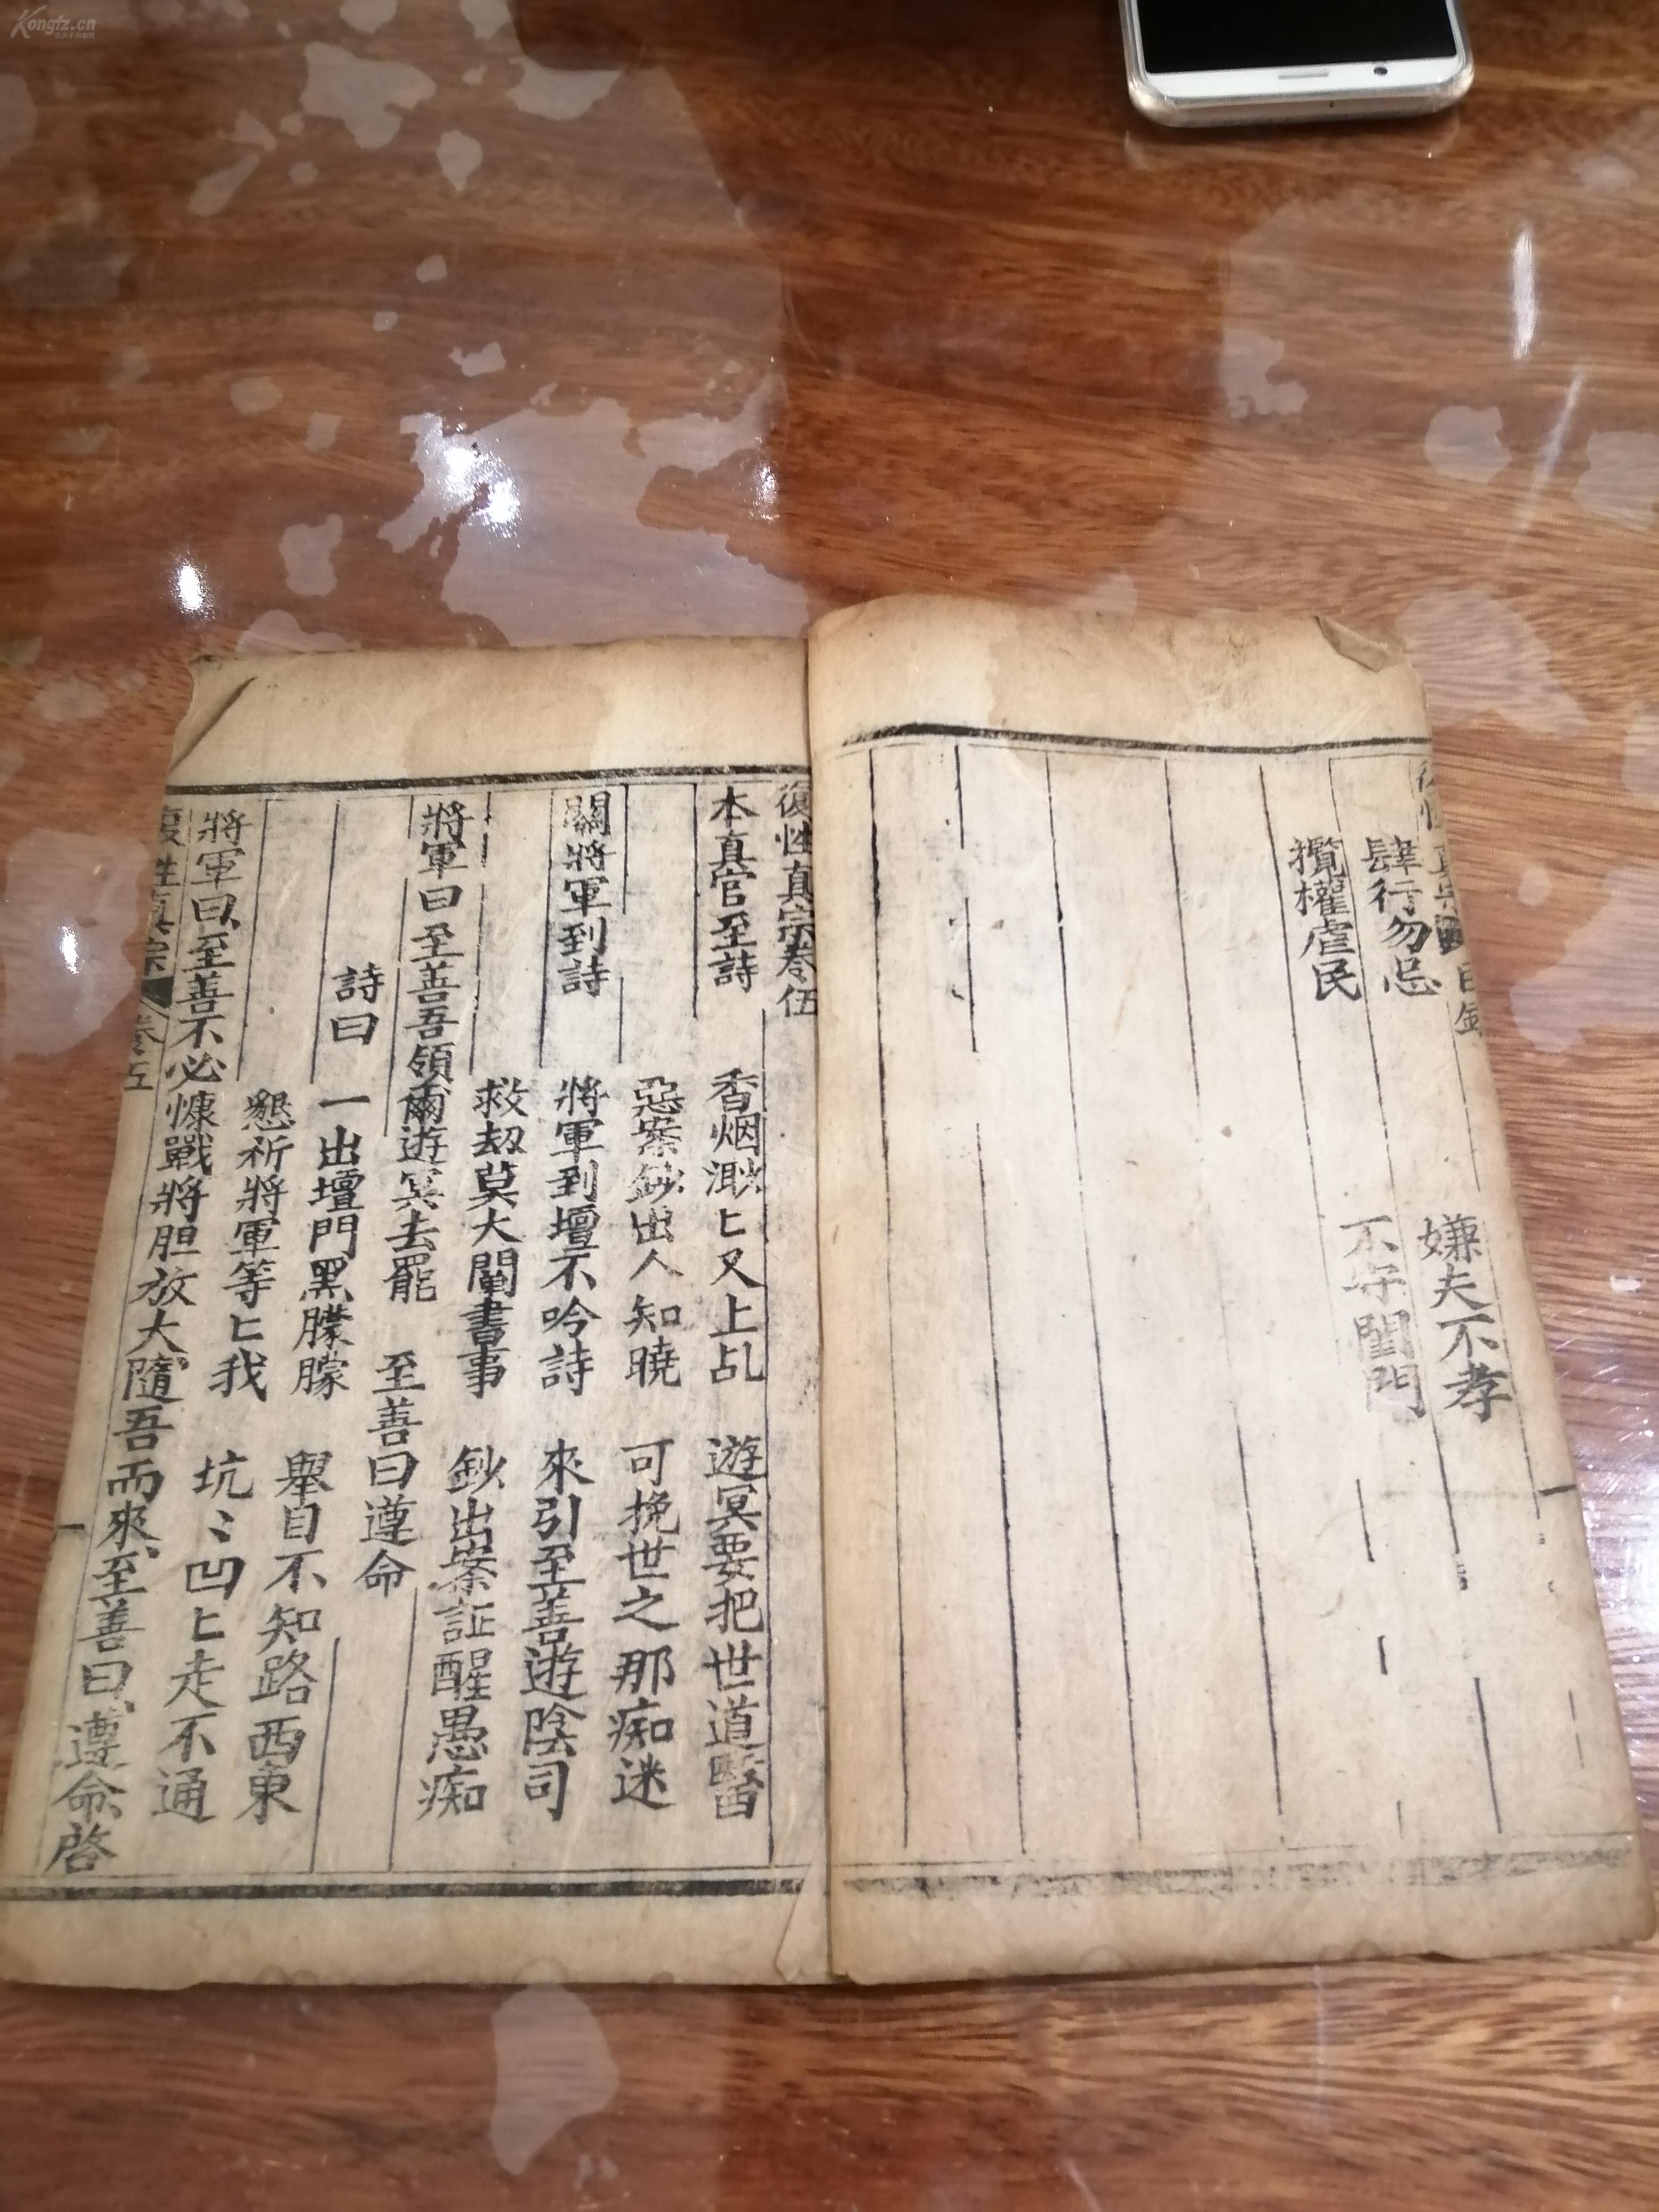 Kongfz.cn
肆行勿忌　嫌夫不孝
攬權虐民　不守閨門
復性真宗卷伍
本真官至詩　香烟渺匕又上乩　遊冥要把世道醫
惡案鈔出人知曉　可挽世之那痴迷
關將軍到詩　將軍到壇不吟詩　來引至善遊陰司
救劫莫大闡書事　鈔出案証醒愚痴
將軍曰至善吾領爾遊冥去罷　至善曰遵命
詩曰　一出壇門黑朦朦　舉目不知路西東
懇祈將軍等匕我　坑〻凹匕走不通
將軍曰至善不必慷戰將胆放大隨吾而來至善曰遵命啓
復性真宗　卷五